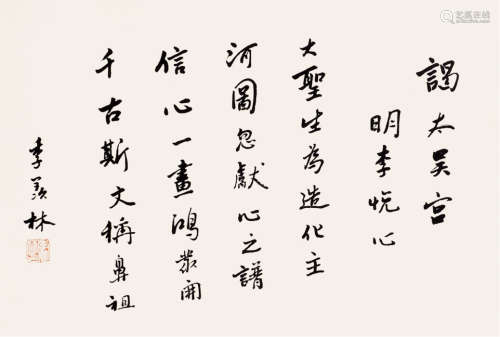 謁太昊宮
明李悅心
大聖生為造化主
河圖忽獻心之譜
信心一畫鴻蒙開
千古斯文稱鼻祖
季羨林